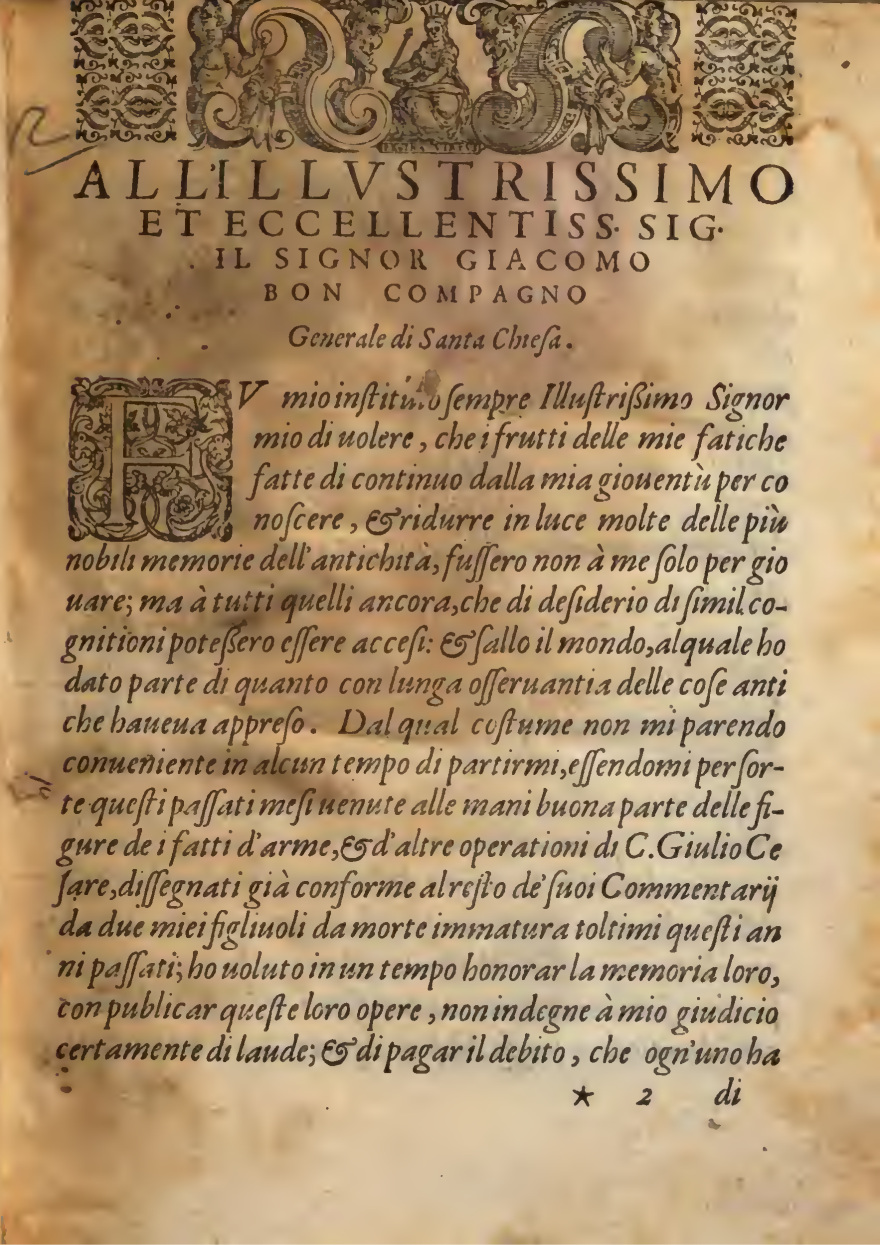 ALL'ILLVSTRISSIMO
ET ECCELLENTISS. SIG.
IL SIGNOR GIACOMO
BON COMPAGNO
Generale di Santa Chieſa.
FV mio inſtituto ſempre Illuſtriſſimo Signor
mio di uolere, che i frutti delle mie fatiche
fatte di continuo dalla mia giouentù per co
noſcere, & ridurre in luce molte delle più
nobili memorie dell'antichità, fuſſero non à me ſolo per gio
uare; ma à tutti quelli ancora, che di deſiderio di ſimil co-
gnitioni poteſſero eſſere acceſi: & ſallo il mondo, al quale ho
dato parte di quanto con lunga oſſeruantia delle coſe anti
che haueua appreſo. Dal qual coſtume non mi parendo
conueniente in alcun tempo di partirmi, eſſendomi per ſor-
te queſti paſſati meſi uenute alle mani buona parte delle fi-
gure de i fatti d'arme, & d'altre operationi di C. Giulio Ce
ſare, diſſegnati già conforme al reſto de' ſuoi Commentarij
da due miei figliuoli da morte immatura toltimi queſti an
ni paſſati; ho uoluto in un tempo honorar la memoria loro,
con publicar queſte loro opere, non indegne à mio giudicio
certamente di laude; & di pagar il debito, che ogn'uno ha
★ 2 di